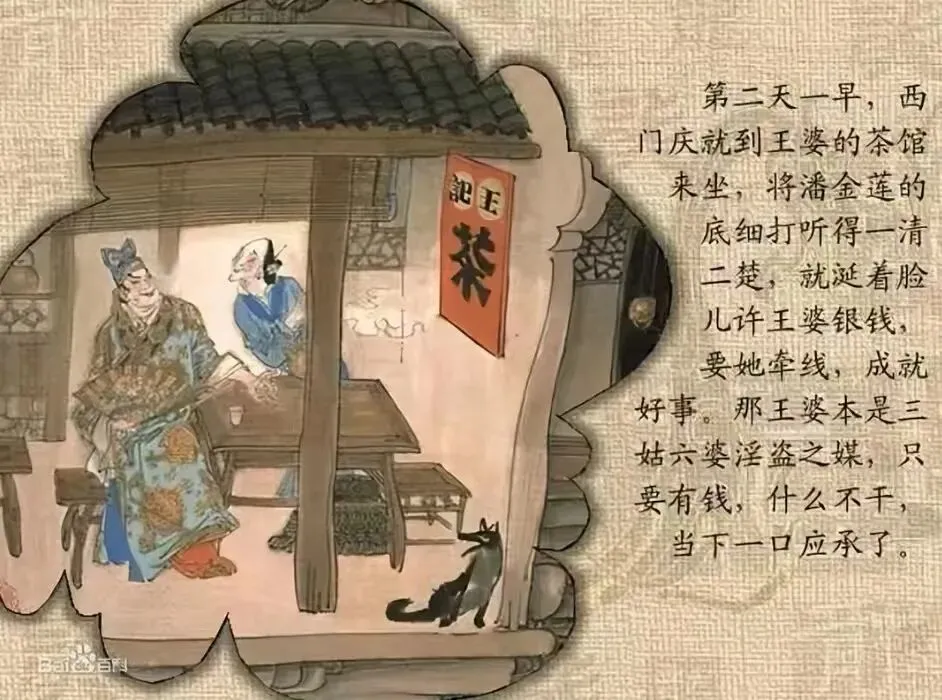 第二天一早，西
门庆就到王婆的茶馆
来坐，将潘金莲的
底细打听得一清
二楚，就涎着脸
儿许王婆银钱，
要她牵线，成就
好事。那王婆本是三
姑六婆淫盗之媒，只
要有钱，什么不干，
当下一口应承了。
王記
茶
Bai百科